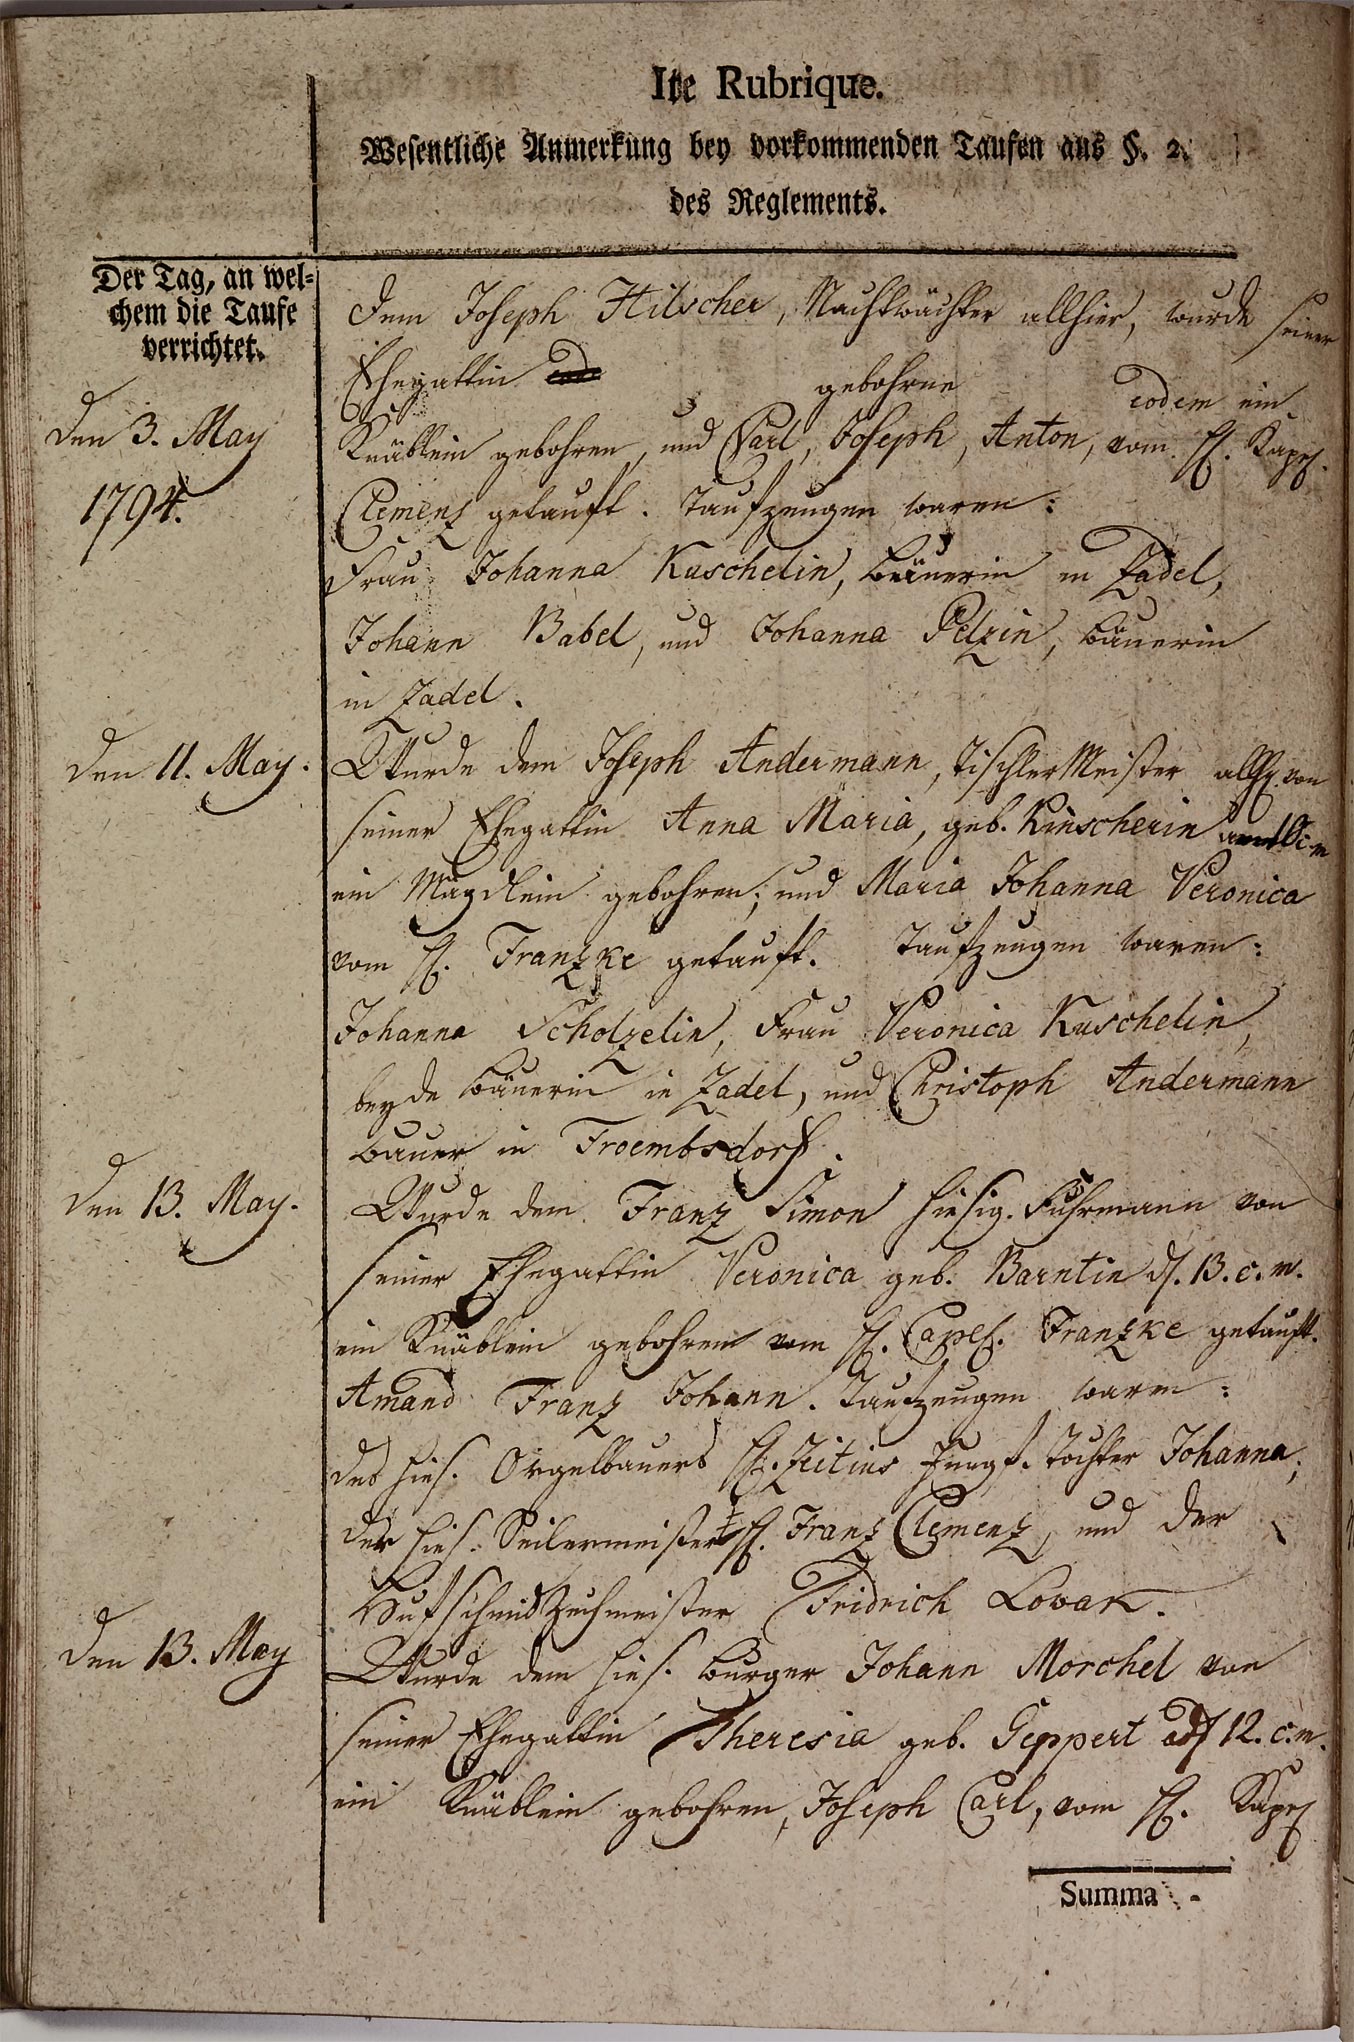 Ite Rubrique.
Wesentliche Anmerkung bey vorkommenden Taufen aus §. 2.
des Reglements.
Der Tag, an wel-
chem die Taufe
verrichtet.
Den 3. May
1794.
Dem Joseph Hilscher, Nachtwächter allhier, wurde seiner
Ehegattin gebohrne eodem ein
Knäblein gebohren, und Carl, Joseph, Anton, vom H. Kapl.
Clemenz getauft. Taufzeugen waren:
Frau Johanna Kuschelin, Bäuerin in Zadel,
Johann Babel, und Johanna Pelzin, Bäuerin
in Zadel.
Den 11. May.
Wurde dem Joseph Andermann, Tischler Meister allh. von
seiner Ehegattin Anna Maria, geb. Kinscherin
ein Mägdlein gebohren; und Maria Johanna Veronica
vom H. Franzke getauft. Taufzeugen waren:
Johanna Scholzelin, Frau Veronica Kuschelin,
beyde Bäuerin in Zadel, und Christoph Andermann
Bauer in Froembsdorf.
Den 13. May.
Wurde dem Franz Simon hiesig. Fuhrmann von
seiner Ehegattin Veronica geb. Barntin d. 13. c. m.
ein Knäblein gebohren vom H. Capl. Franzke getauft.
Amand Franz Johann. Taufzeugen waren:
des hies. Orgelbauers H. Zeitius Jungf. Tochter Johanna,
der hies. Seilermeister H. Franz Clemenz, und der
Hufschmidzechmeister Fridrich Lovak.
Den 13. May
Wurde dem hies. Burger Johann Morchel von
seiner Ehegattin Theresia geb. Geppert 12. c. m.
ein Knäblein gebohren, Joseph Carl, vom H. Kapl
Summa -